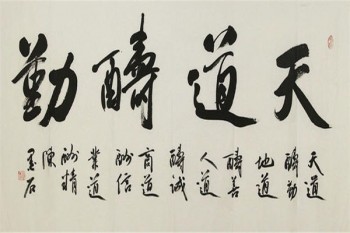 天道醻勤
天道
醻勤
地道
醻善
人道
醻誠
商道
酬信
業道
酬精
陳
石